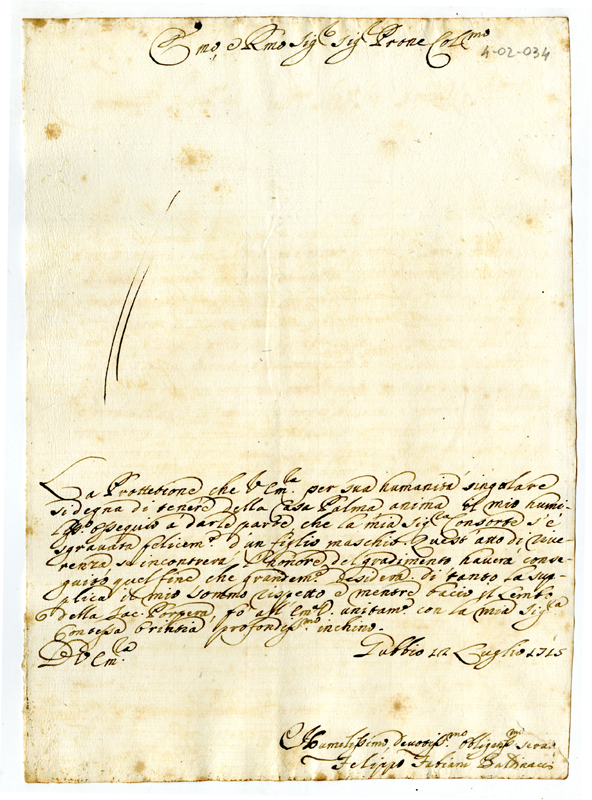 Emo, e Rmo Sig.e Sig.e Prone Col.mo
4-02-034
La Prottetione che V Em.za per sua humanità singolare
si degna di tenere della Casa Palma anima il mio humi-
liss.o osseguio a darle parte, che la mia Sig.ra Consorte s'è
sgravata felicem.e d'un figlio maschio. Quest' atto di reve-
renza, se incontrerà l'honore del gradimento haverà conse-
guito quel fine che grandem.e desidera. Di tanto la sup-
plica il mio sommo rispetto e mentre bacio il lembo
della Sac. Porpora, fo all' Em. V. unitam.e con la mia Sig.ra
Contessa profondiss.mo inchino.
D V Em.za
Gubbio 12 Luglio 1715
Humilissimo, Devotiss.mo Obligm Ser.e
Filippo Fabiani